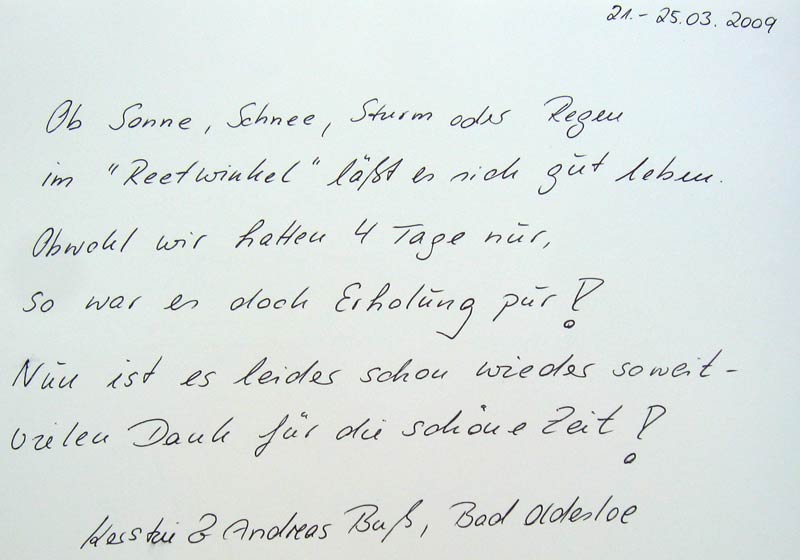 21.- 25.03. 2009
Ob Sonne, Schnee, Sturm oder Regen
im "Reetwinkel" läßt es sich gut leben.
Obwohl wir hatten 4 Tage nur,
so war es doch Erholung pur!
Nun ist es leider schon wieder soweit -
vielen Dank für die schöne Zeit!
Kerstin & Andreas Buß, Bad Oldesloe